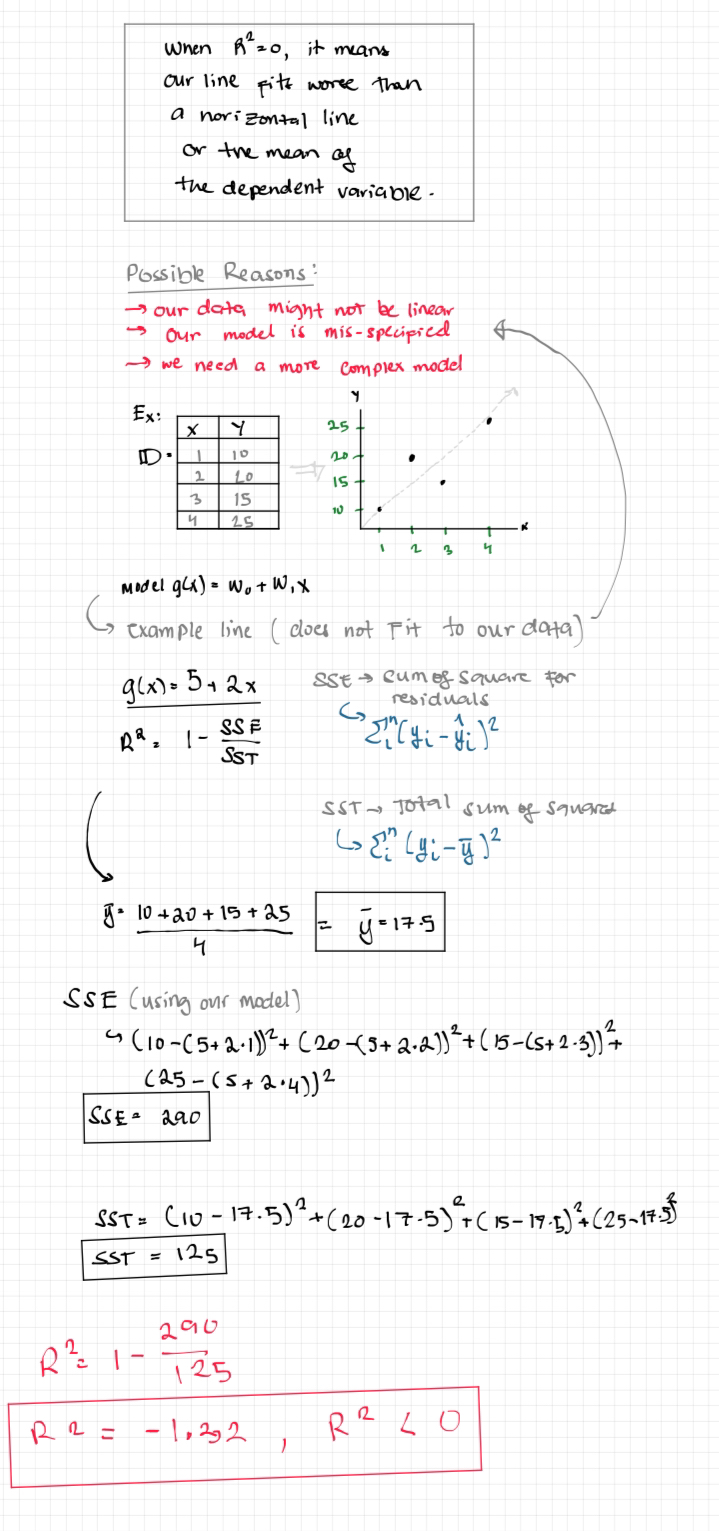 When R²=0, it means
our line fits worse than
a horizontal line
or the mean of
the dependent variable.
Possible Reasons:
→ our data might not be linear
→ our model is mis-specified
→ we need a more complex model
Ex:
D =
X Y
1 10
2 20
3 15
4 25
Y
25
20
15
10
1 2 3 4
x
Model g(x) = W₀ + W₁x
Example line (does not Fit to our data)
g(x) = 5 + 2x
R² = 1 - SSE/SST
SSE → sum of square for
residuals
↳ Σᵢⁿ(yᵢ - ŷᵢ)²
SST → Total sum of squared
↳ Σᵢⁿ(yᵢ - ȳ)²
ȳ = (10 + 20 + 15 + 25)/4 = ȳ = 17.5
SSE (using our model)
↳ (10-(5+2·1))² + (20-(5+2·2))² + (15-(5+2·3))² +
(25-(5+2·4))²
SSE = 290
SST = (10-17.5)² + (20-17.5)² + (15-17.5)² + (25-17.5)²
SST = 125
R² = 1 - 290/125
R² = -1.32, R² < 0